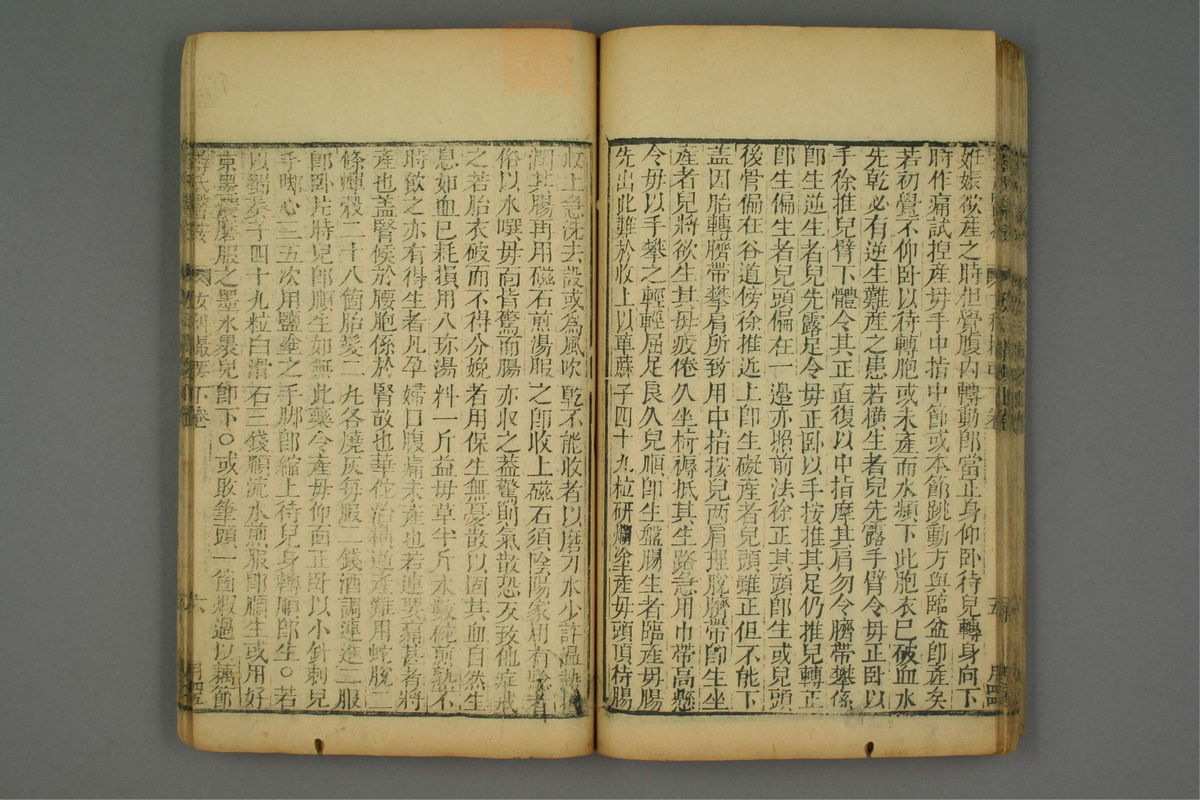 妊娠欲産之時但覺腹内轉動即當正身仰卧待兒轉身向下
時作痛試捏産母手中指中節或本節跳動方與臨盆即産矣
若初覺不仰卧以待轉胞或未産而水頻下此胞衣已破血水
先乾必有逆生難産之患若横生者兒先露手臂令母正卧以
手徐推兒臂下體令其正直復以中指摩其肩勿令臍帶攀係
即生逆生者兒先露足令母正卧以手按推其足仍推兒轉正
即生偏生者兒頭偏在一邊亦照前法徐正其頭即生或兒頭
後骨偏在谷道傍徐推近上即生礙産者兒頭雖正但不能下
盖因胎轉臍帶攀肩所致用中指按兒两肩理脫臍帶即生坐
産者兒將欲生其母疲倦久坐椅褥抵其生路急用巾帶高懸
令母以手攀之輕輕屈足良久兒順即生盤腸生者臨産母腸
先出此難於收上以萆蔴子四十九粒研爛塗産母頭頂待腸
收上急洗去設或為風吹乾不能收者以磨刀水少許温熱
潤其腸再用磁石煎湯服之即收上磁石須陰陽家用有驗者
俗以水噀母面背驚而腸亦收之盖驚則氣散恐反致他症戒
之若胎衣破而不得分娩者用保生無憂散以固其血自然生
息如血已耗損用八珎湯料一斤益母草半斤水數碗煎熟不
時飲之亦有得生者凡孕婦口腹痛未産也若連腰痛甚者將
産也盖腎候於腰胞係於腎故也華佗治横逆産難用蛇脫一
條蟬殼二十八箇胎髮一丸各燒灰每服一錢酒調連進二服
即卧片時兒即順生如無此藥令産母仰面正卧以小針刺兒
手脚心三五次用鹽塗之手脚即縮上待兒身轉順即生○若
以蜀葵子四十九粒白滑石三錢順流水煎服即順生或用好
京墨磨服之墨水裹兒即下○或敗筆頭一箇煅過以藕節
薛氏醫按
女科撮要下卷
六